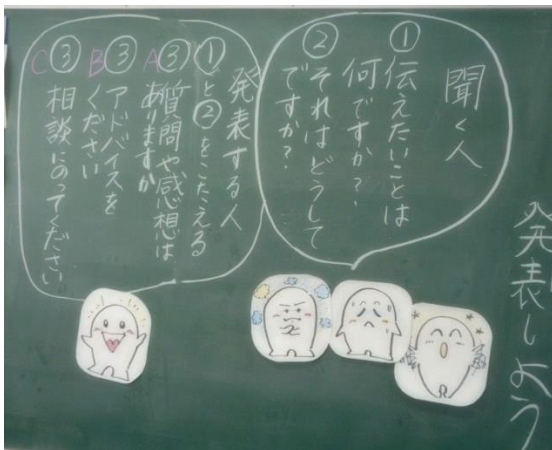 発表しよう
聞く人
①伝えたいことは
何ですか?
②それはどうして
ですか?
発表する人
①と②をこたえる
A③質問や感想は
ありますか
B③アドバイスを
ください
C③相談にのってください